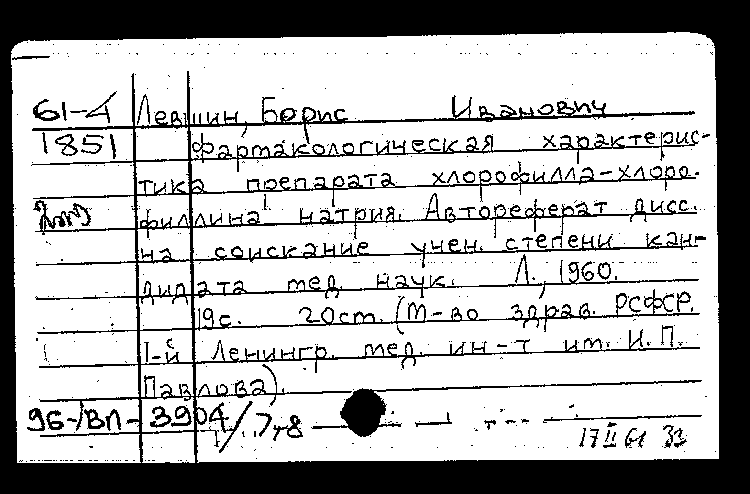 61-4 Левшин, Борис Иванович
1851 Фармакологическая характерис-
тика препарата хлорофилла-хлоро-
филлина натрия. Автореферат дисс.
на соискание учен. степени кан-
дидата мед. наук. Л., 1960.
19с. 20см. (М-во здрав. РСФСР.
1-й Ленингр. мед. ин-т им. И.П.
Павлова).
96-/ВЛ-3904/7,8
17 II 61